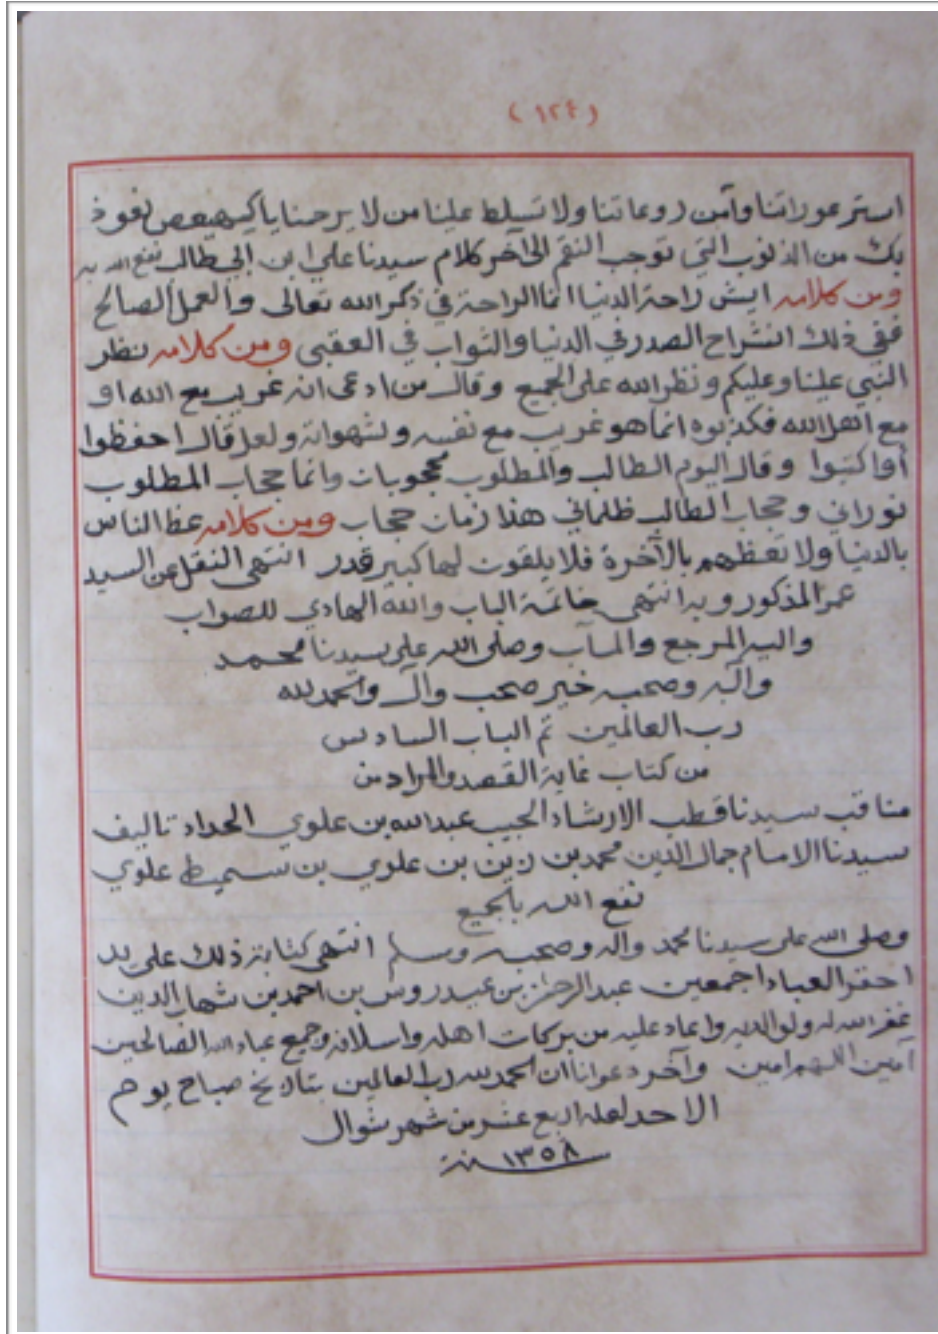 (١٢٤)
استر عوراتنا وآمن روعاتنا ولا تسلط علينا من لا يرحمنا يا كهيعص نعوذ
بك من الذنوب التي توجب النقم الى آخر كلام سيدنا علي ابن ابي طالب نفع الله به
ومن كلامه ايش راحة الدنيا انما الراحة في ذكر الله تعالى والعمل الصالح
ففي ذلك انشراح الصدر في الدنيا والثواب في العقبى ومن كلامه نظر
النبي علينا وعليكم ونظر الله على الجميع وقال من ادعى انه غريب مع الله او
مع اهل الله فكذبوه انما هو غريب مع نفسه وشهواته ولعل قال احفظوا
أو اكتبوا وقال اليوم الطالب والمطلوب محجوبات وانما حجاب المطلوب
نوراني وحجاب الطالب ظلماني هذا زمان حجاب ومن كلامه عظ الناس
بالدنيا ولا تعظهم بالآخرة فلا يلقون لها كبير قدر انتهى النقل عن السيد
عمر المذكور وبه انتهى خاتمة الباب والله الهادي للصواب
واليه المرجع والمآب وصلى الله على سيدنا محمد
وآله وصحبه خير صحب وآل والحمد لله
رب العالمين تم الباب السادس
من كتاب غاية القصد والمراد من
مناقب سيدنا قطب الارشاد الحبيب عبدالله بن علوي الحداد تاليف
سيدنا الامام جمال الدين محمد بن زين بن علوي بن سميط علوي
نفع الله بالجميع
وصلى الله على سيدنا محمد واله وصحبه وسلم انتهى كتابة ذلك على يد
احقر العباد اجمعين عبدالرحمن بن عيدروس بن احمد بن شهاب الدين
غفر الله له ولوالديه واعاد عليه من بركات اهله واسلافه وجميع عباد الله الصالحين
آمين اللهم امين وآخر دعوانا ان الحمد لله رب العالمين بتاريخ صباح يوم
الاحد لعله اربع عشر من شهر شوال
سنة ١٣٥٨